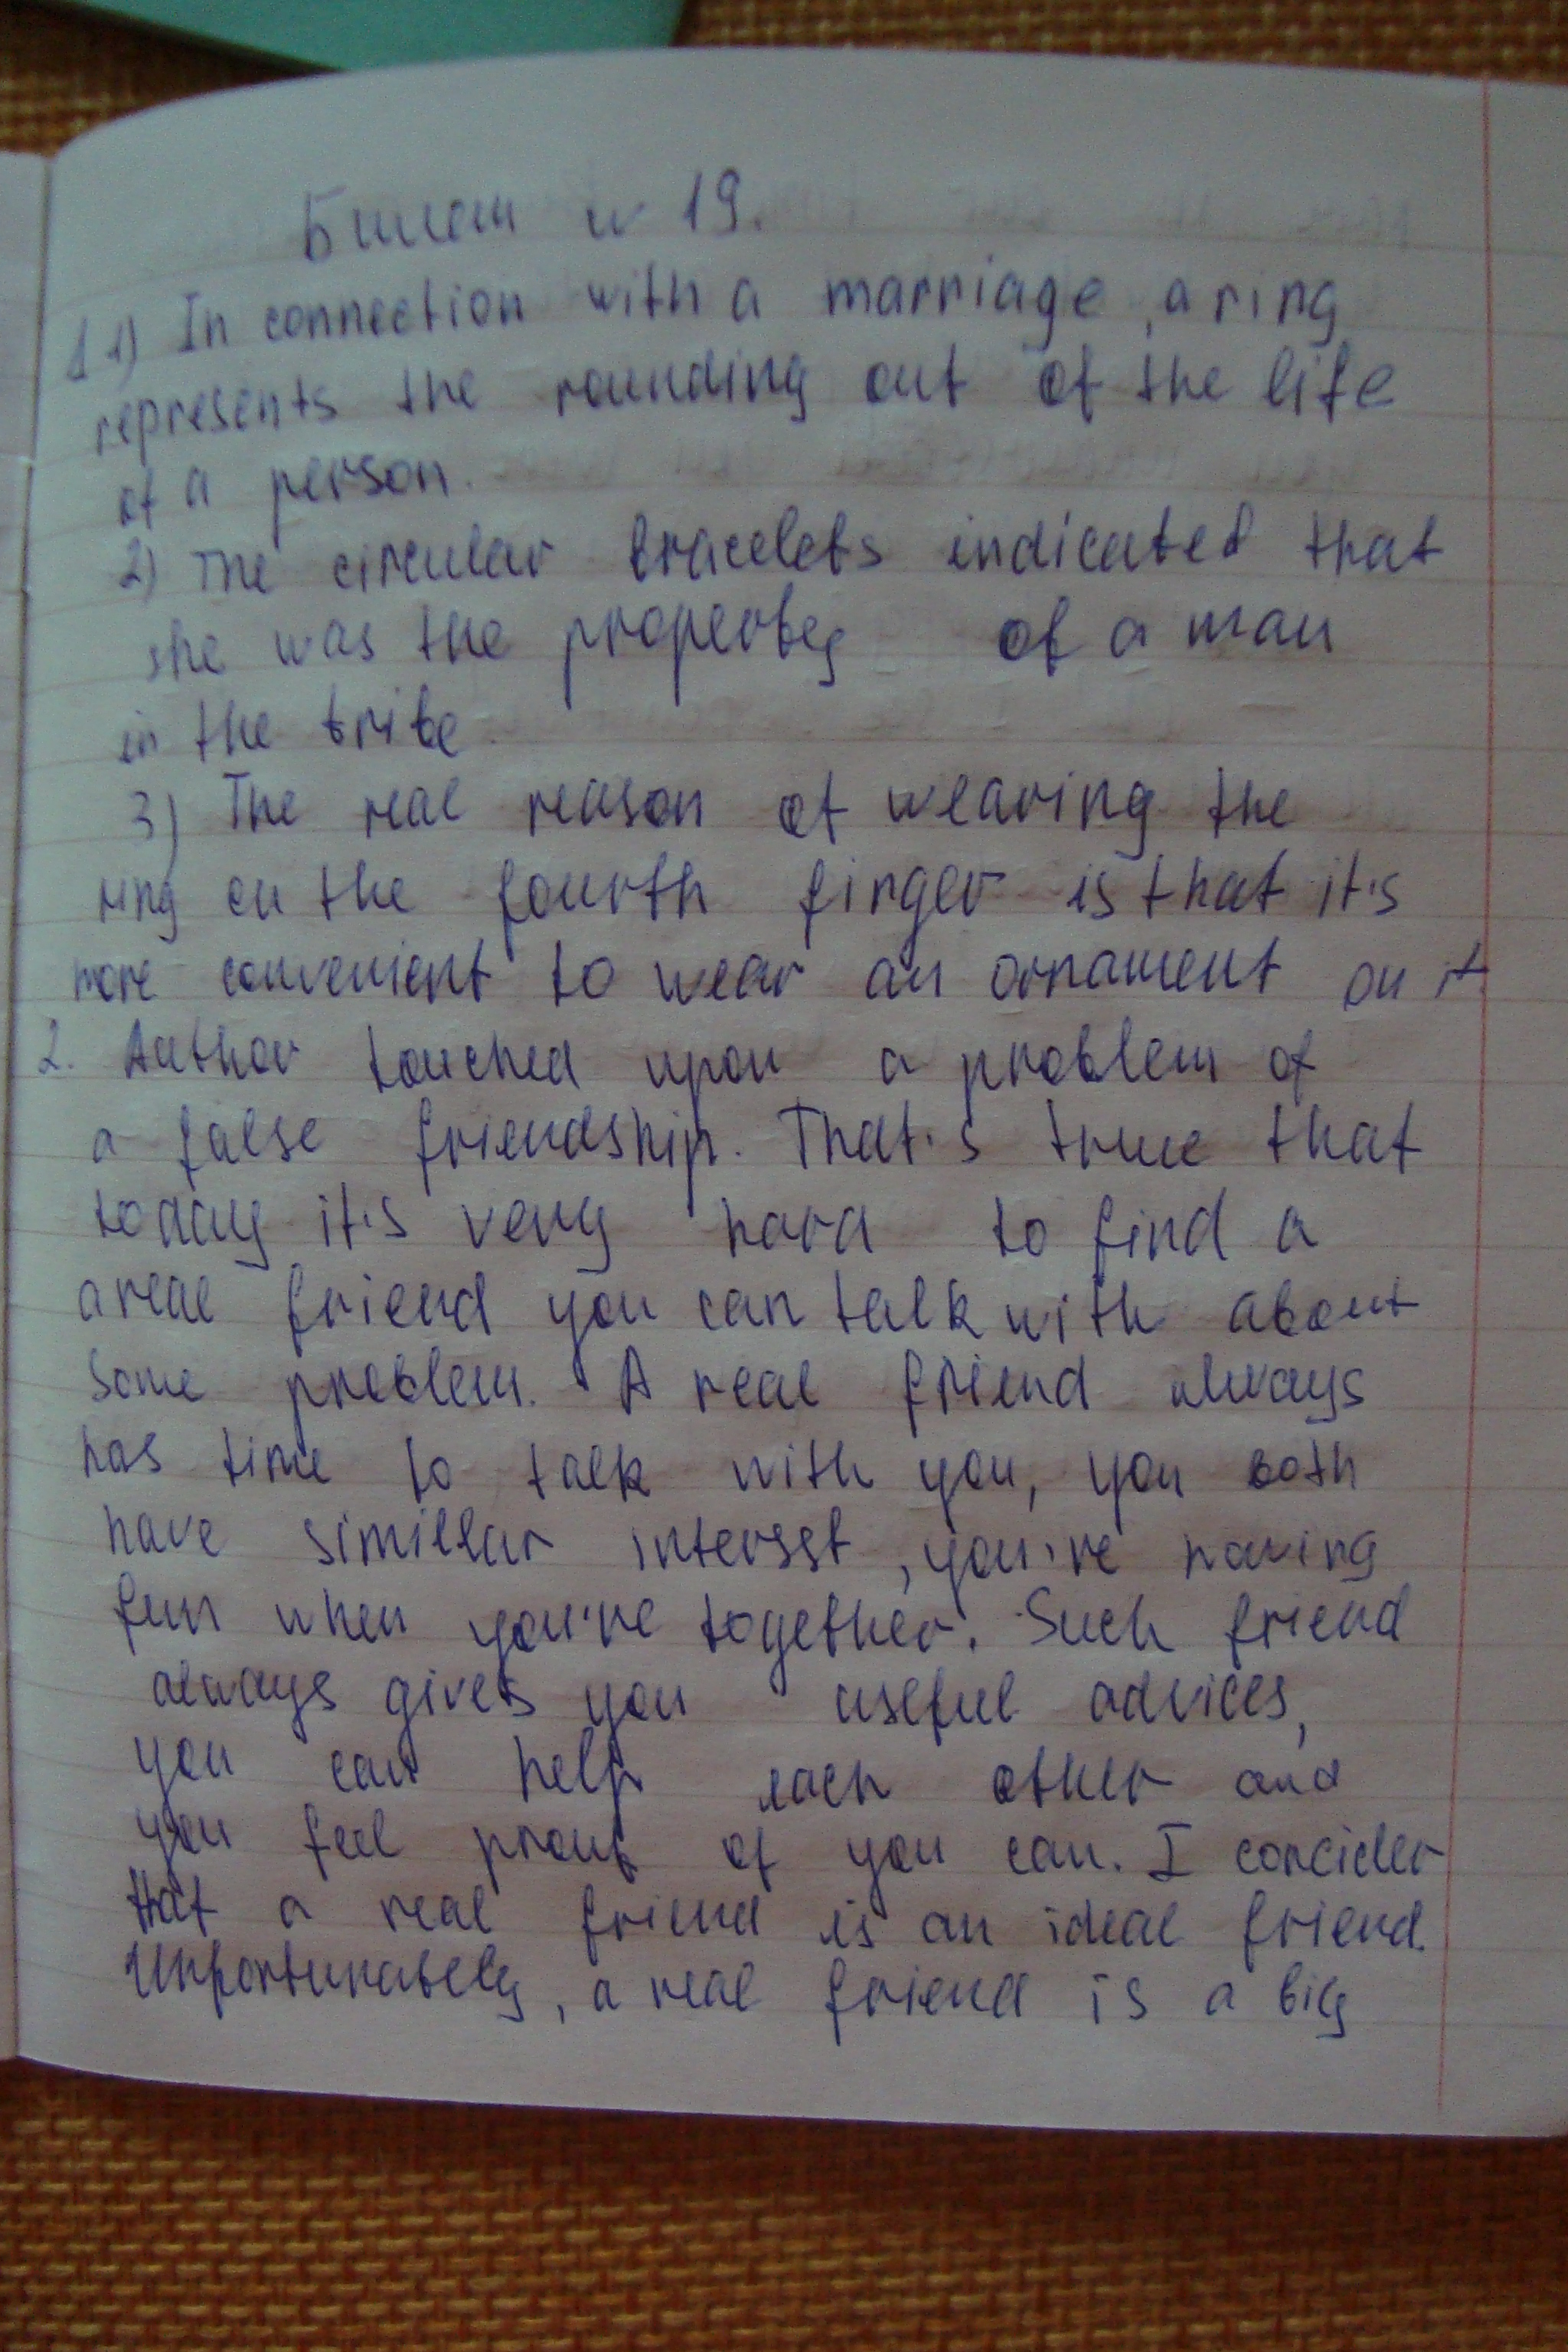 Билет N 19.
1 1) In connection with a marriage, a ring
represents the rounding out of the life
of a person.
2) The circular bracelets indicated that
she was the property of a man
in the tribe
3) The real reason of wearing the
ring on the fourth finger is that it's
more convenient to wear an ornament on it
2. Author touched upon a problem of
a false friendship. That's true that
today it's very hard to find a
a real friend you can talk with about
some problem. A real friend always
has time to talk with you, you both
have simillar intersst, you're having
fun when you're together. Such friend
always gives you useful advices,
you can help each other and
you feel proub of you can. I concider
that a real friend is an ideal friend.
Unfortunately, a real friend is a big